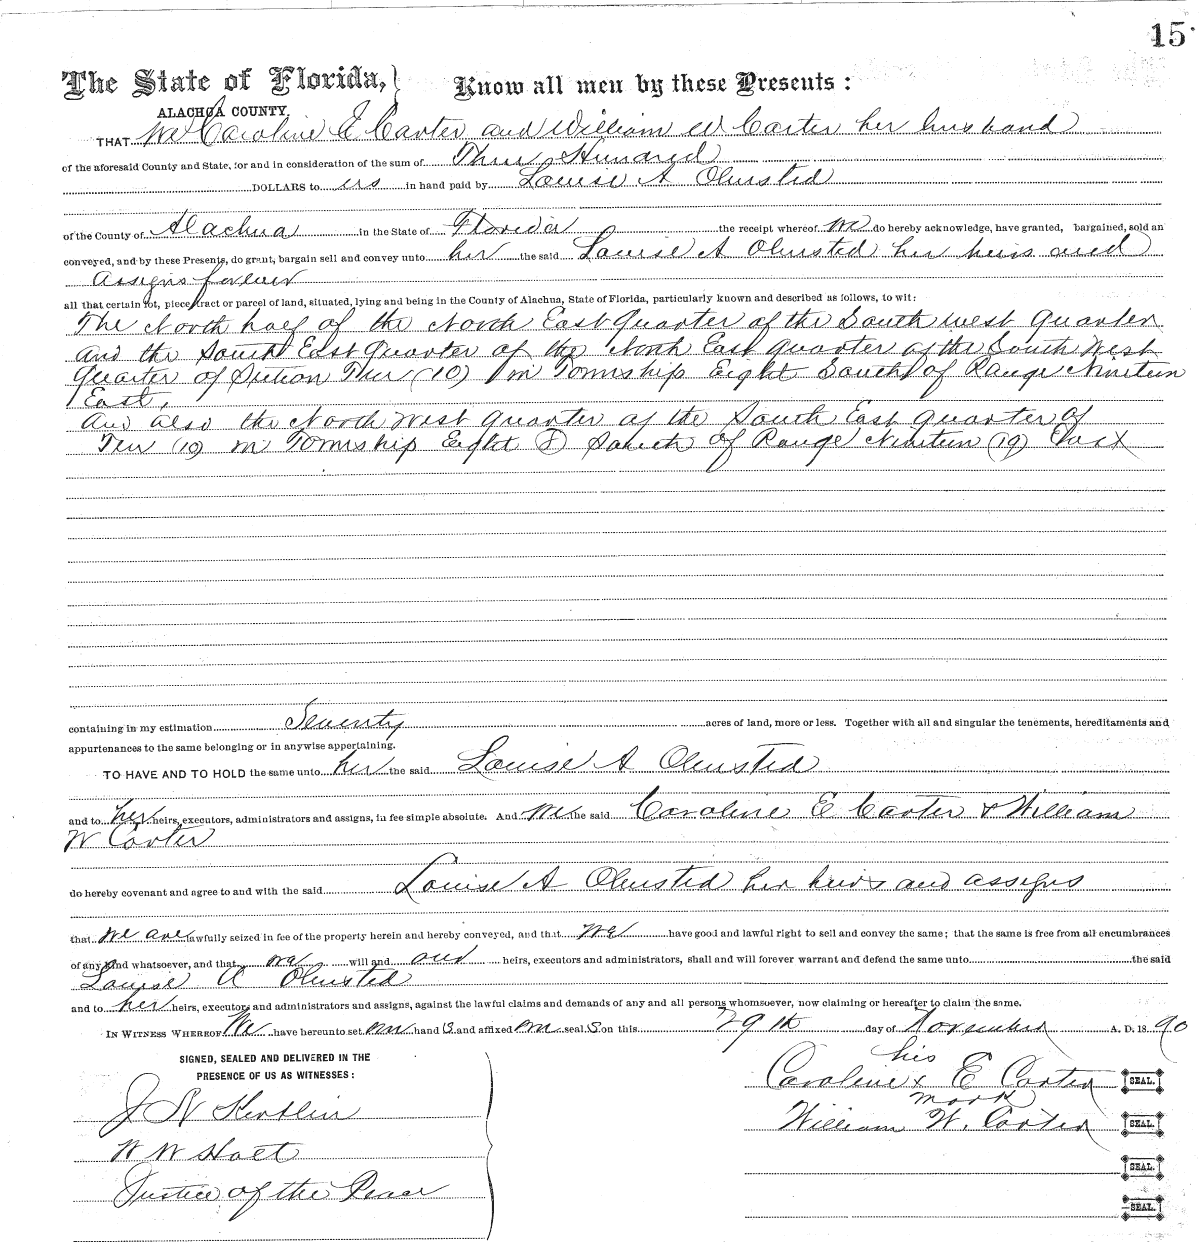 15
The State of Florida, } Know all men by these Presents :
ALACHUA COUNTY.
THAT We Caroline E Carter and William W Carter her husband
of the aforesaid County and State, for and in consideration of the sum of Three Hundred
DOLLARS to us in hand paid by Louise A Olmsted
of the County of Alachua in the State of Florida the receipt whereof we do hereby acknowledge, have granted, bargained, sold an
conveyed, and by these Presents, do grant, bargain sell and convey unto her the said Louise A Olmsted her heirs and
assigns forever
all that certain lot, piece tract or parcel of land, situated, lying and being in the County of Alachua, State of Florida, particularly known and described as follows, to wit:
The North half of the North East Quarter of the South west Quarter
and the South East Quarter of the North East quarter of the South West
Quarter of Section Ten (10) in Township Eight South of Range Nineteen
East,
And also the North west quarter of the South East quarter of
Ten (10) in Township Eight (8) South of Range Nineteen (19) East
containing in my estimation Seventy acres of land, more or less. Together with all and singular the tenements, hereditaments and
appurtenances to the same belonging or in anywise appertaining.
TO HAVE AND TO HOLD the same unto her the said Louise A Olmsted
and to her heirs, executors, administrators and assigns, in fee simple absolute. And We the said Caroline E Carter & William
W Carter
do hereby covenant and agree to and with the said Louise A Olmsted her heirs and assigns
that we are lawfully seized in fee of the property herein and hereby conveyed, and that we have good and lawful right to sell and convey the same; that the same is free from all encumbrances
of any kind whatsoever, and that we will and our heirs, executors and administrators, shall and will forever warrant and defend the same unto the said
Louise A Olmsted
and to her heirs, executors and administrators and assigns, against the lawful claims and demands of any and all persons whomsoever, now claiming or hereafter to claim the same.
IN WITNESS WHEREOF We have hereunto set our hand s and affixed our seal s on this 29th day of November A. D. 18 90
SIGNED, SEALED AND DELIVERED IN THE
PRESENCE OF US AS WITNESSES :
his
Caroline x E Carter SEAL.
mark
J N
William W. Carter SEAL.
W W
SEAL.
Justice of the Peace
SEAL.